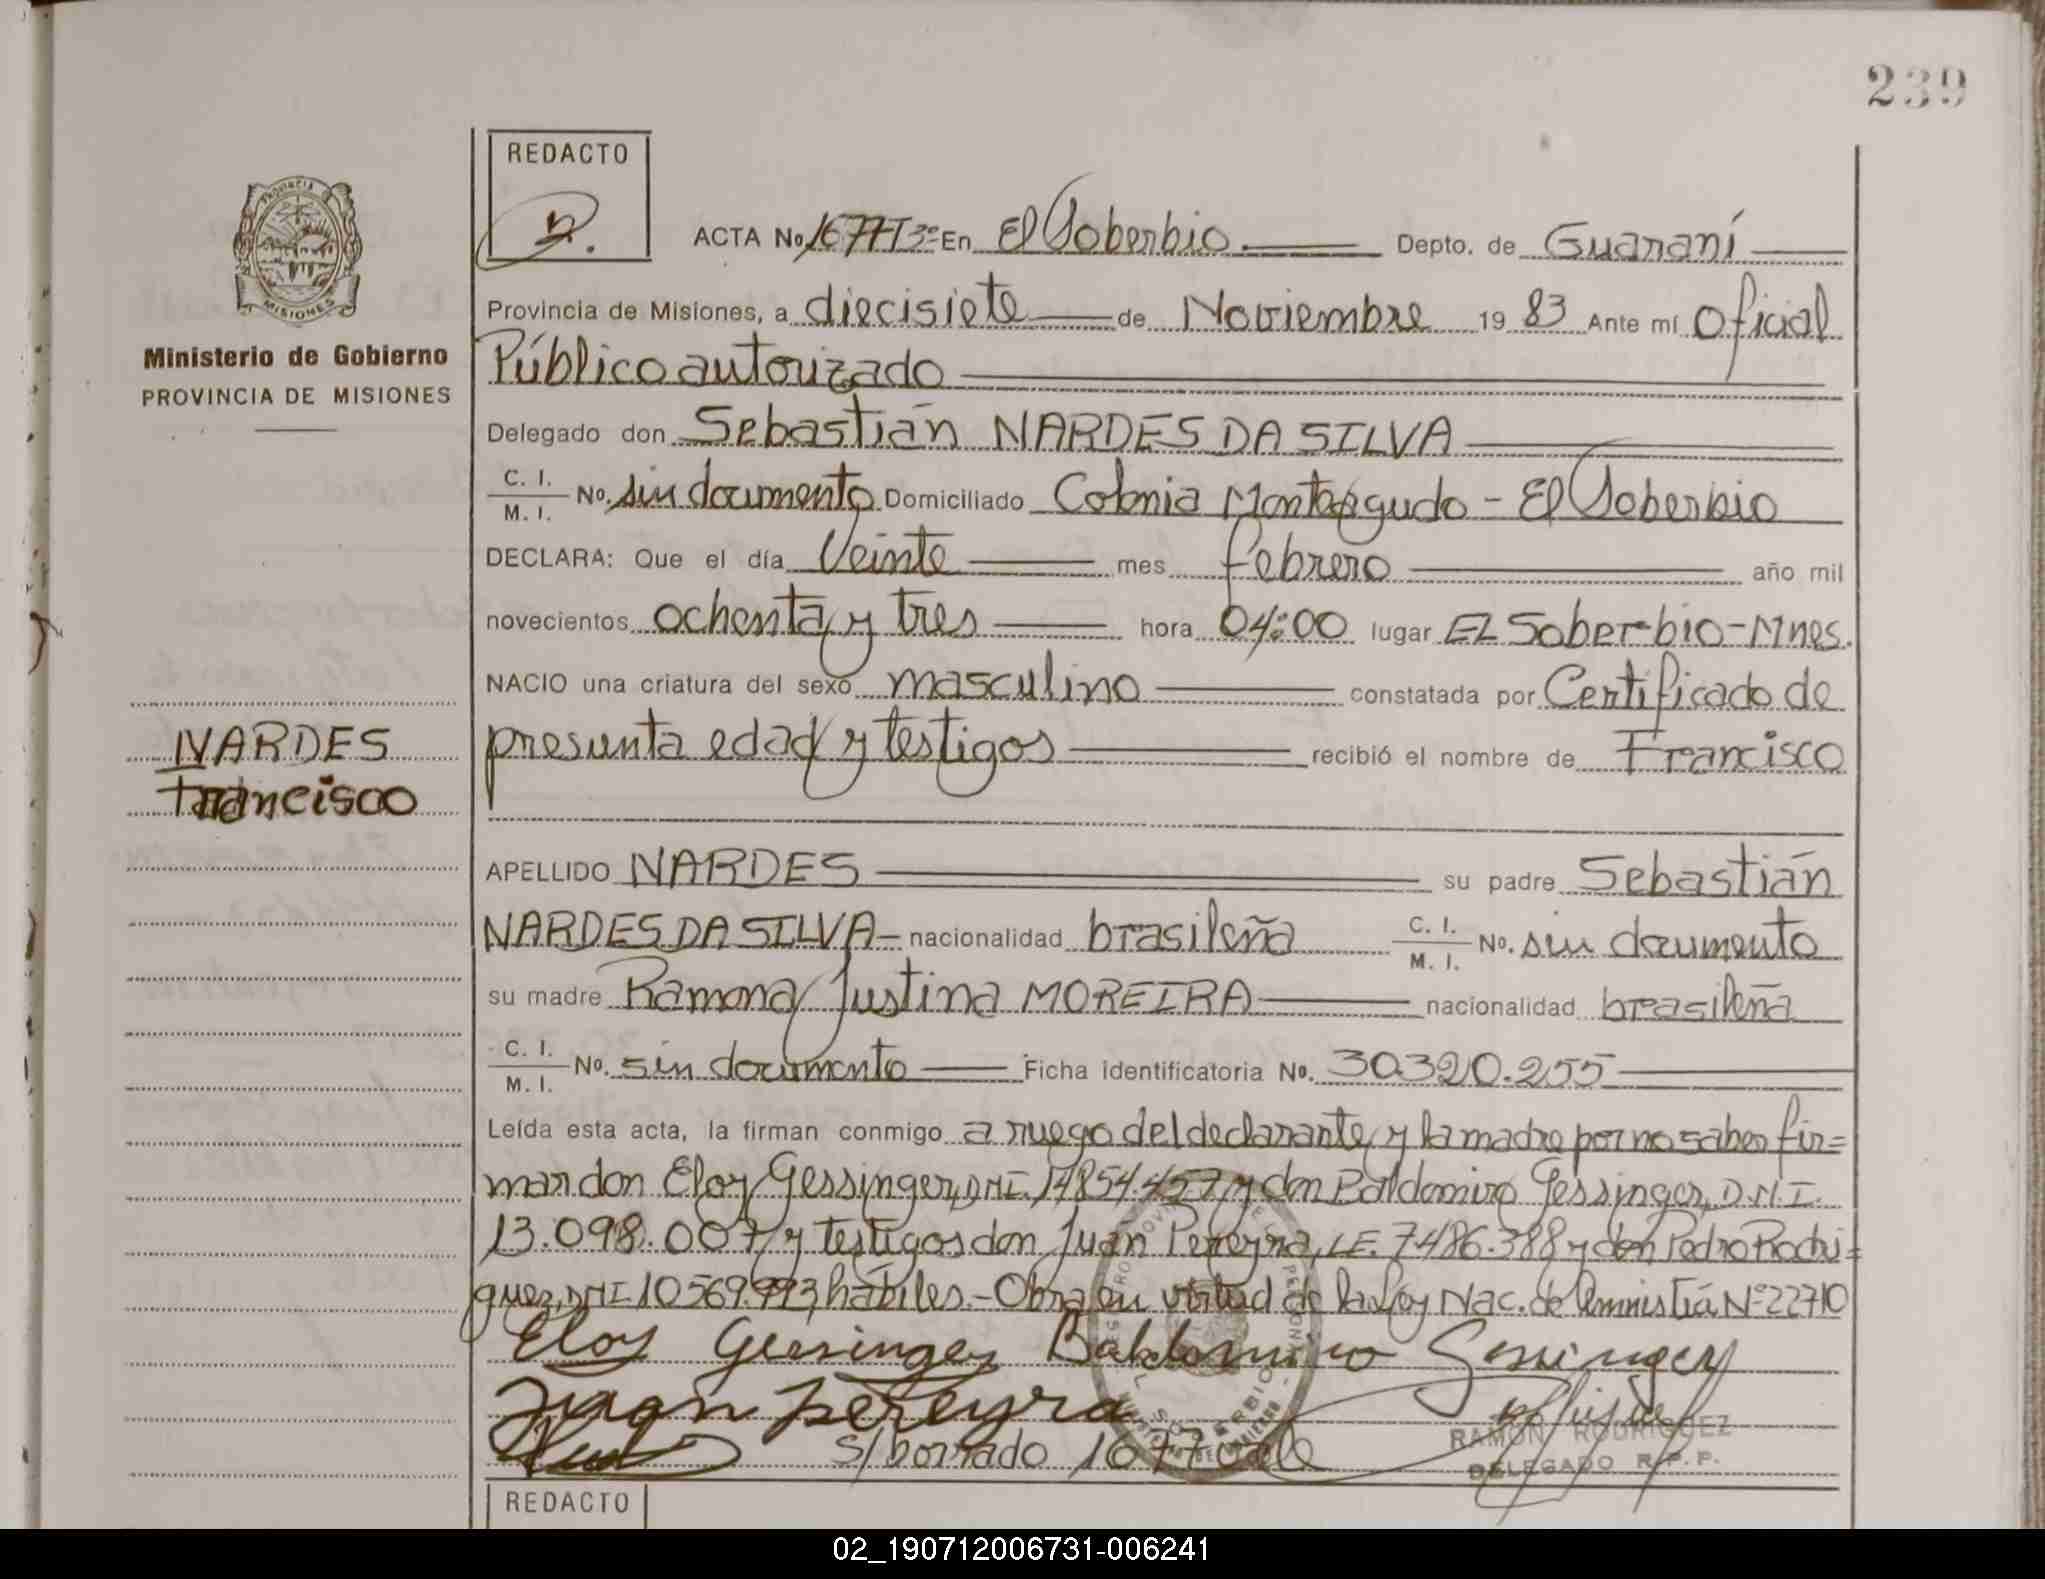 239
REDACTO
ACTA No 1677-T3º En El Soberbio Depto. de Guaraní
Provincia de Misiones, a diecisiete de Noviembre 19 83 Ante mí Oficial
Público autorizado
Delegado don Sebastián NARDES DA SILVA
C. I.
M. I.
No. sin documento Domiciliado Colonia Monteagudo - El Soberbio
DECLARA: Que el día Veinte mes febrero año mil
novecientos ochenta y tres hora 04:00 lugar EL Soberbio-Mnes.
NACIO una criatura del sexo masculino constatada por Certificado de
presunta edad y testigos recibió el nombre de Francisco
APELLIDO NARDES su padre Sebastián
NARDES DA SILVA- nacionalidad brasileña C. I. M. I. No. sin documento
su madre Ramona Justina MOREIRA nacionalidad brasileña
C. I.
M. I.
No. sin documento Ficha identificatoria No. 30.320.255
Leída esta acta, la firman conmigo a ruego del declarante y la madre por no saber fir=
mar don Eloy Gessinger, DNI. 14854.457 y don Baldomiro Gessinger, D.N.I.
13.098.007 y testigos don Juan Pereyra, L.E. 7486.388 y don Pedro Rodri=
guez, DNI 10569.993, hábiles.- Obra en virtud de la Ley Nac. de Amnistía Nº 22710
Eloy Gessinger Baldomiro Gessinger
Juan Pereyra
S/borrado 1677 vale
RAMON RODRIGUEZ
DELEGADO R.P.P.
REDACTO
PROVINCIA
MISIONES
Ministerio de Gobierno
PROVINCIA DE MISIONES
NARDES
Francisco
02_190712006731-006241